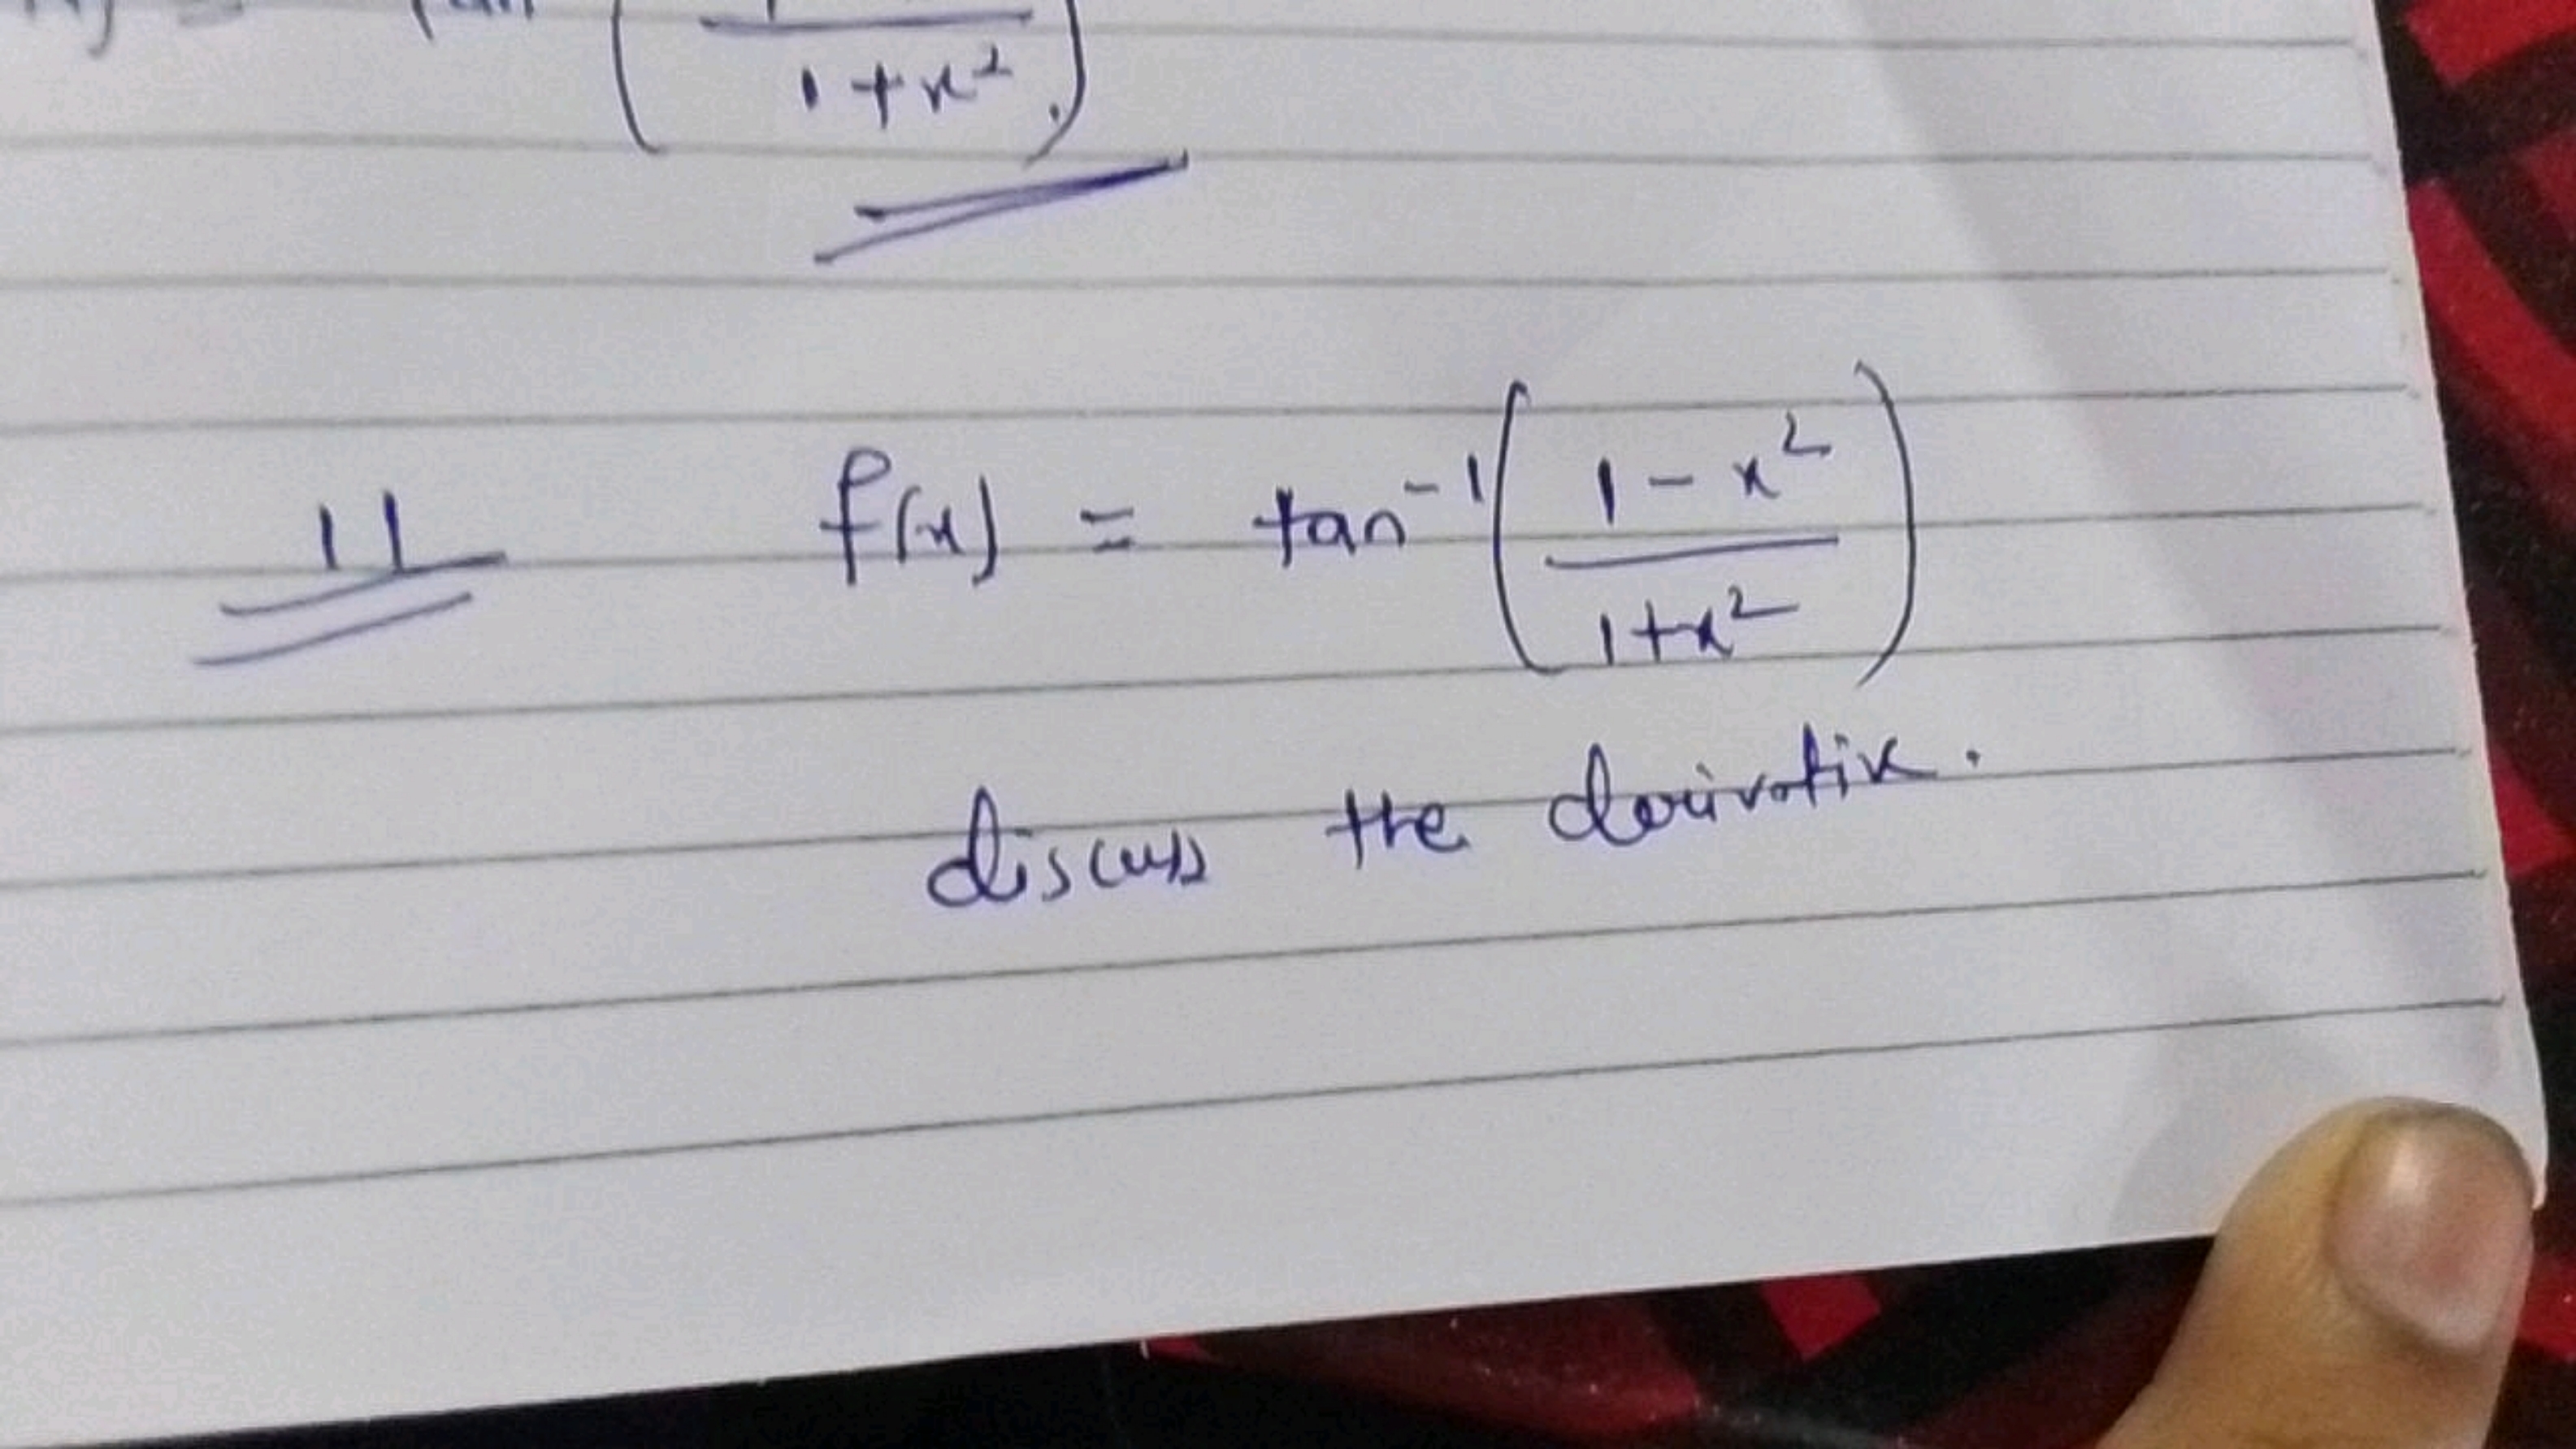 1+x²
11 f(x) = tan⁻¹(1-x²/1+x²)
discuss the derivative.